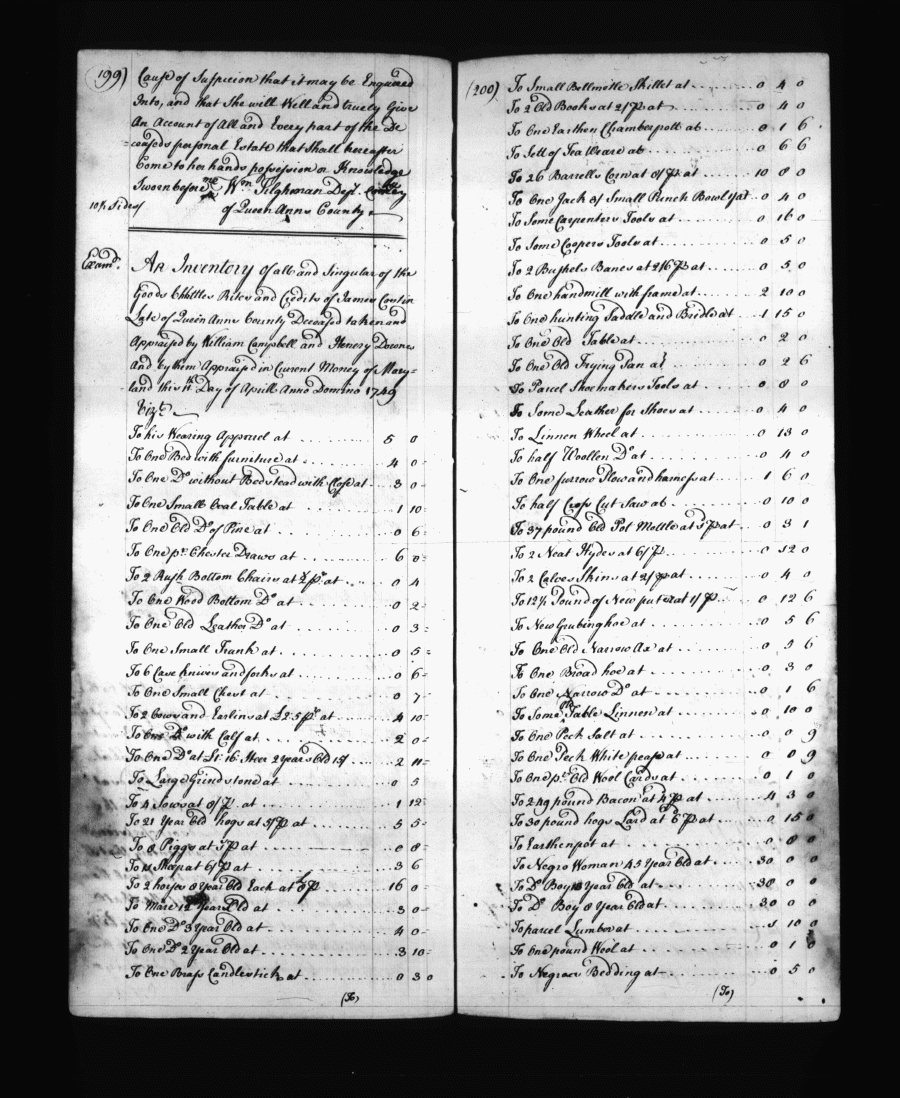 (199) Cause of Suspicion that it may be Enquired
Into, and that She will Well and truely Give
An Account of All and Every part of the De
=ceaseds personal Estate that Shall hereafter
Come to her hands possession or Knowledge
Sworn before me Wm Tilghman Depy. Comry
10½ Sides/ of Queen Anns County
Examd. An Inventory of all and Singular of the
Goods Chattles Rites and Credits of James
Late of Queen Anns County Deceased taken and
Appraised by William Campbell and Henery Downes
And by them Appraised in Current Money of Mary=
land this Day of Aprill Anno Domino 1749
Vizt.
To his Wearing Apparel at 5 0
To One Bed with furniture at 4 0
To One Do. without Bedstead with at 3 0
To One Small Oval Table at 1 10
To One Old Do. of Pine at 0 6
To One pr. Chester Draws at 6 0
To 2 Rush Bottom Chairs at 2/ pr. at 0 4
To One Wood Bottom Do. at 0 2
To One Old Leather Do. at 0 3
To One Small Trunk at 0 5
To 6 Case knives and forks at 0 6
To One Small Chest at 0 7
To 2 Cows and Earlins at £2 5 pr. at 4 10
To One Do. with Calf at 2 0
To One Do. at £1 16 Steer 2 years Old 15/ 2 11
To Large Grindstone at 0 5
To 4 Sows at 8/ P at 1 12
To 21 Year Old hogs at 5/ P at 5 5
To 8 Piggs at 1/ P at 0 8
To 11 Sheep at 6/ P at 3 6
To 2 horses 8 year Old Each at P 16 0
To Mare 12 Years Old at 3 0
To One Do. 3 Year Old at 4 0
To One Do. 2 Year Old at 3 10
To One Brass Candlestick at 0 3 0
(To)
(200) To Small Bellmettle Skillet at 0 4 0
To 2 Old Books at 2/ P at 0 4 0
To One Earthen Chamberpott at 0 1 6
To Sett of Tea Weare at 0 6 6
To 26 Barrells Corn at 8/ P at 10 8 0
To One Jack & Small Punch Bowl at 0 4 0
To Some Carpenters Tools at 0 16 0
To Some Coopers Tools at 0 5 0
To 2 Bushels Banes at 2/6 P at 0 5 0
To One handmill with frame at 2 10 0
To One hunting Saddle and Bridle at 1 15 0
To One Old Table at 0 2 0
To One Old Frying Pan at 0 2 6
To Parcel Shoemakers Tools at 0 8 0
To Some Leather for Shoes at 0 4 0
To Linnen Wheel at 0 13 0
To half Woollen Do. at 0 4 0
To One furrow Plow and harness at 1 6 0
To half Cross Cut Saw at 0 10 0
To 37 pound Old Pot Mettle at 1/ P at 0 3 1
To 2 Neat Hydes at 6/ P 0 12 0
To 2 Calves Skins at 2/ P at 0 4 0
To 12½ Pound of New puter at 1/ P 0 12 6
To New Grubinghoe at 0 5 6
To One Old Narrow Ax at 0 5 6
To One Broad hoe at 0 3 0
To One Narrow Do. at 0 1 6
To Some Old Table Linnen at 0 10 0
To One Peck Salt at 0 0 9
To One Peck White peas at 0 0 9
To One pr. Old Wool Cards at 0 1 0
To 249 pound Bacon at 4 P at 4 3 0
To 30 pound hogs Lard at 6 P at 0 15 0
To Earthenpot at 0 8 0
To Negro Woman 45 Year Old at 30 0 0
To Do. Boy 10 Year Old at 38 0 0
To Do. Boy 8 Year Old at 30 0 0
To parcel Lumber at 1 10 0
To One pound Wool at 0 1 0
To Negroes Bedding at 0 5 0
(To)